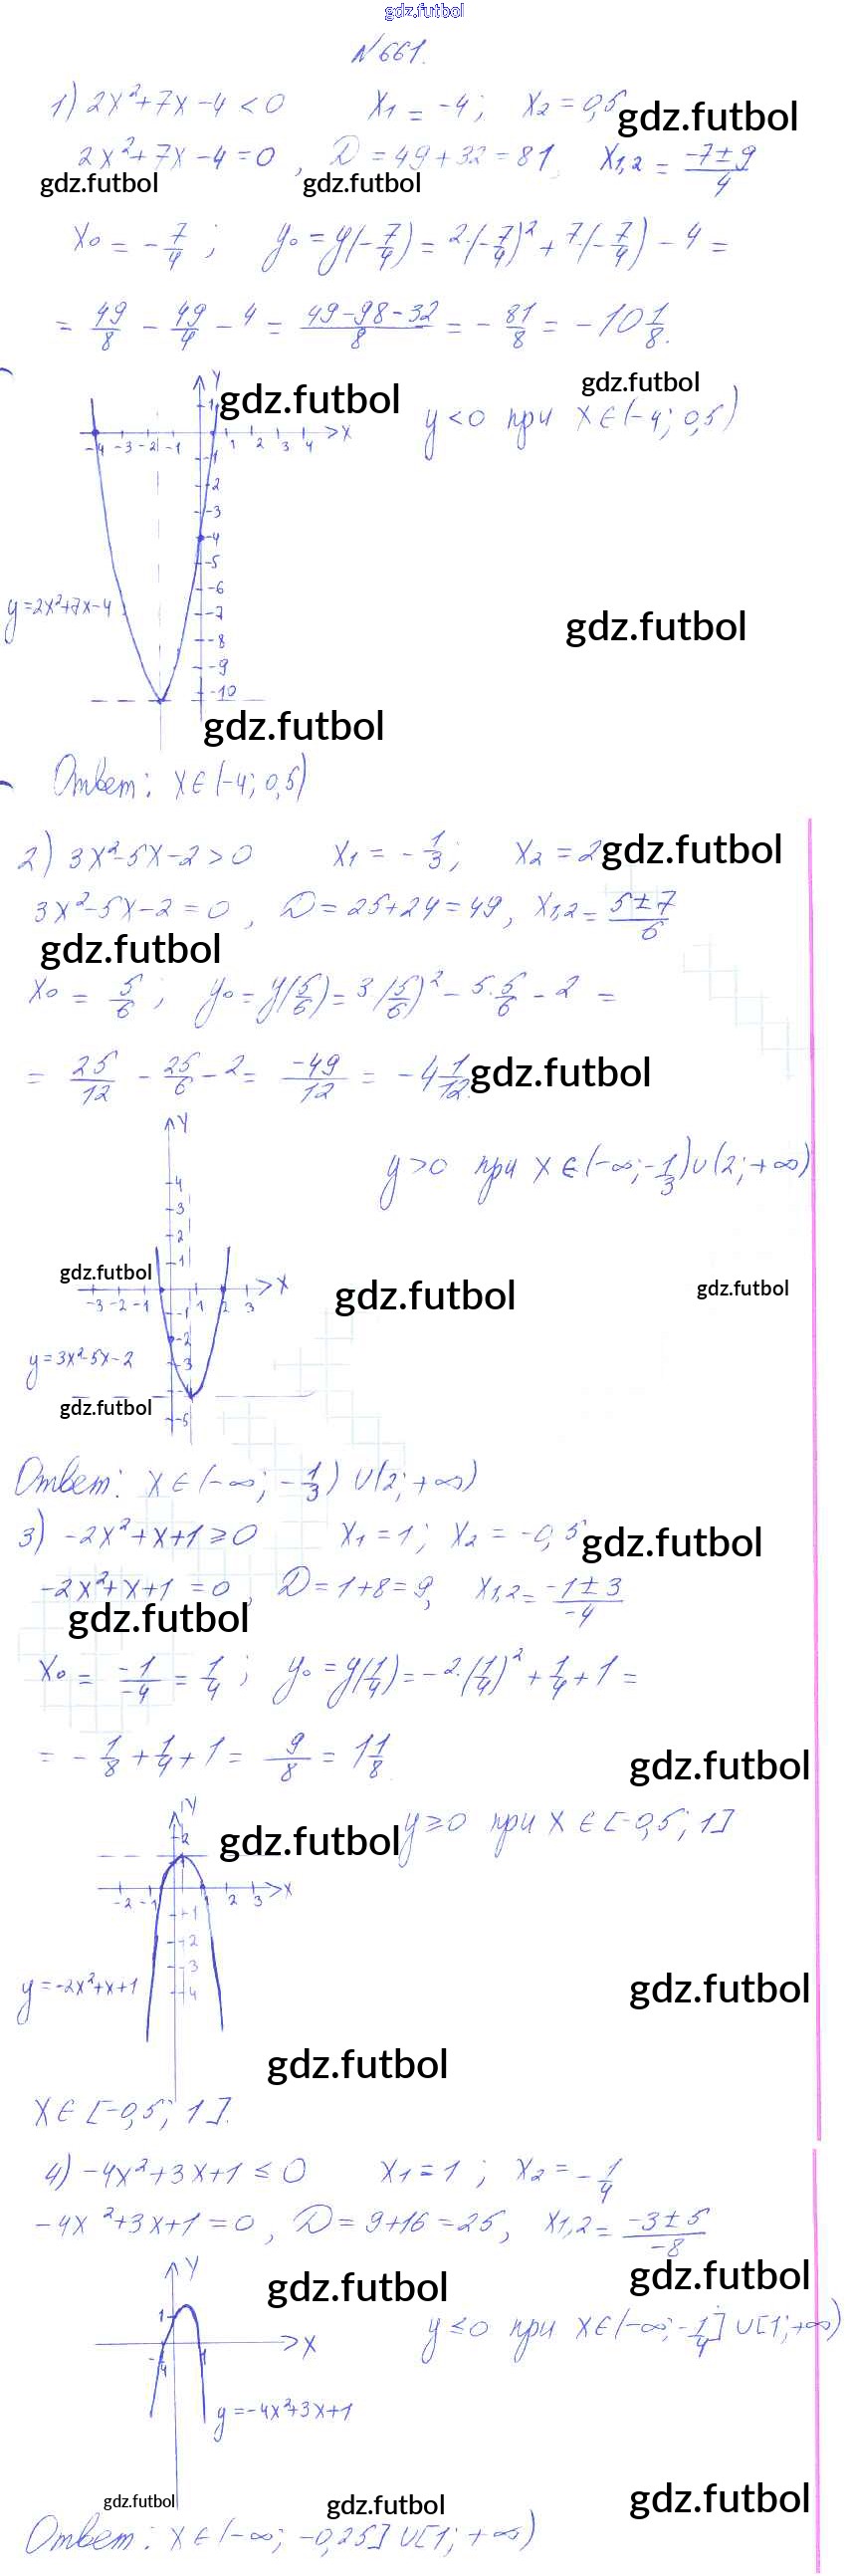 gdz.futbol
N 661.
1) 2x²+7x-4 < 0 x₁ = -4; x₂ = 0,5
gdz.futbol
2x²+7x-4=0, D = 49+32=81, x₁,₂ = (-7±9)/4
gdz.futbol gdz.futbol
x₀ = -7/4; y₀ = y(-7/4) = 2·(-7/4)² + 7·(-7/4) - 4 =
= 49/8 - 49/4 - 4 = (49-98-32)/8 = -81/8 = -10 1/8.
gdz.futbol gdz.futbol
y<0 при x∈(-4; 0,5)
Y
1
-4 -3 -2 -1 1 2 3 4 X
-1
-2
-3
-4
-5
-6
y=2x²+7x-4
-7
gdz.futbol
-8
-9
-10
gdz.futbol
Ответ: x∈(-4; 0,5)
2) 3x²-5x-2>0 x₁ = -1/3; x₂ = 2
gdz.futbol
3x²-5x-2=0, D=25+24=49, x₁,₂ = (5±7)/6
gdz.futbol
x₀ = 5/6; y₀ = y(5/6) = 3(5/6)² - 5·5/6 - 2 =
= 25/12 - 25/6 - 2 = -49/12 = -4 1/12.
gdz.futbol
Y
y>0 при x∈(-∞; -1/3)∪(2; +∞)
4
3
2
1
gdz.futbol gdz.futbol gdz.futbol
-3 -2 -1 1 2 3 X
-1
-2
y=3x²-5x-2
-3
gdz.futbol
-5
Ответ: x∈(-∞; -1/3) ∪(2; +∞)
3) -2x²+x+1≥0 x₁=1; x₂ = -0,5
gdz.futbol
-2x²+x+1=0, D=1+8=9, x₁,₂ = (-1±3)/-4
gdz.futbol
x₀ = -1/-4 = 1/4; y₀ = y(1/4) = -2·(1/4)² + 1/4 + 1 =
= -1/8 + 1/4 + 1 = 9/8 = 1 1/8.
gdz.futbol
Y
y≥0 при x∈[-0,5; 1]
gdz.futbol
2
-2 -1 2 3 X
1
2
-3
y=-2x²+x+1
4
gdz.futbol
gdz.futbol
x∈[-0,5; 1].
4) -4x²+3x+1≤0 x₁=1; x₂=-1/4
-4x²+3x+1=0, D=9+16=25, x₁,₂=(-3±5)/-8
gdz.futbol gdz.futbol
Y
1
y≤0 при x∈(-∞; -1/4]∪[1; +∞)
-1/4 1 X
y=-4x²+3x+1
gdz.futbol gdz.futbol gdz.futbol
Ответ: x∈(-∞; -0,25]∪[1; +∞)